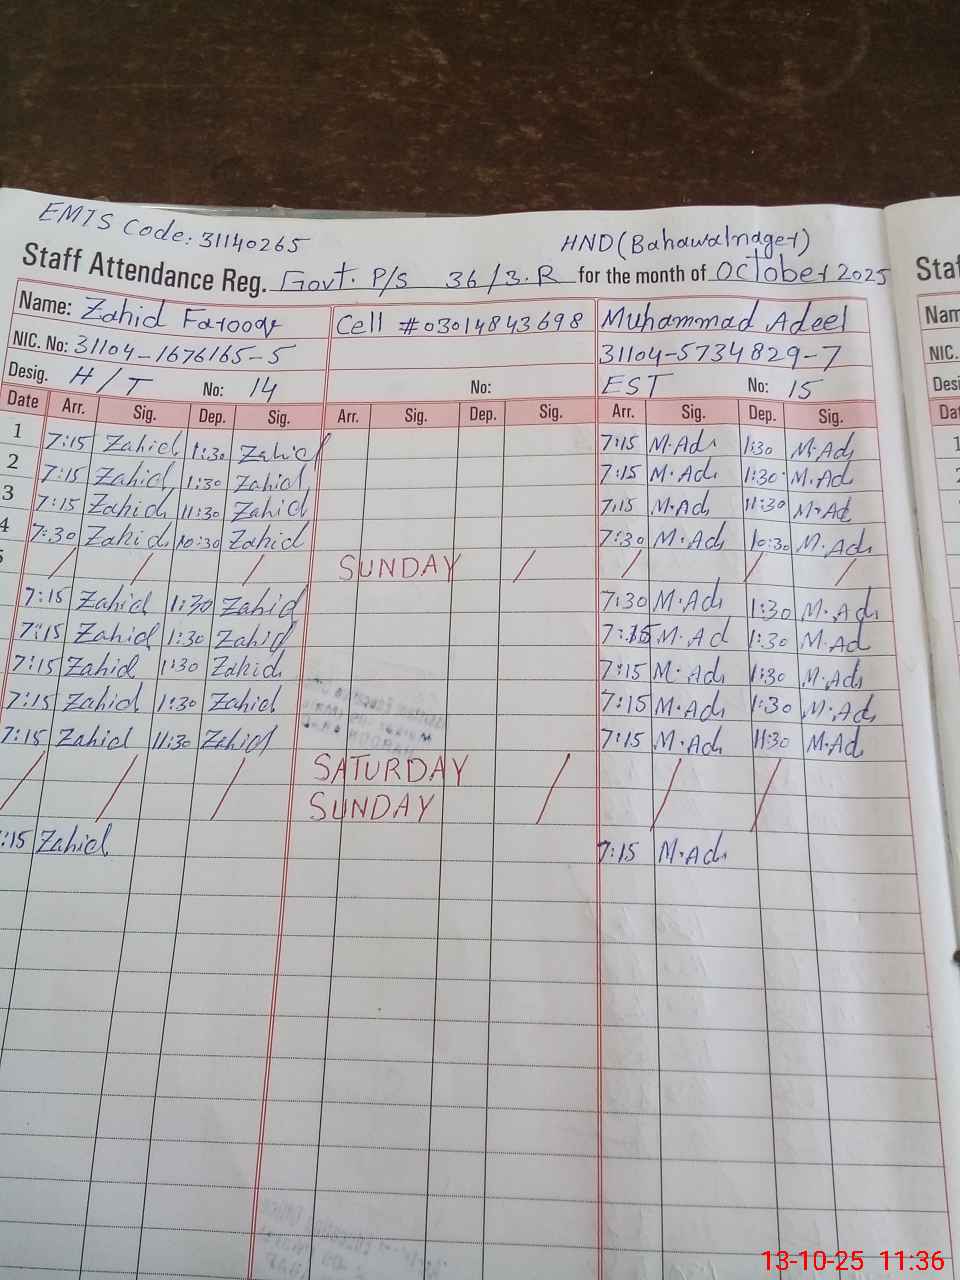 EMIS Code: 31140265
HND (Bahawalnager)
Staff Attendance Reg. Govt. P/S 36/3.R for the month of October 2025
Name: Zahid Farooq Cell #03014843698 Muhammad Adeel
NIC. No: 31104-1676165-5 31104-5734829-7
Desig. H/T No: 14 No: EST No: 15
Date Arr. Sig. Dep. Sig. Arr. Sig. Dep. Sig. Arr. Sig. Dep. Sig.
1 7:15 Zahid 1:30 Zahid 7:15 M.Ad 1:30 M.Ad
2 7:15 Zahid 1:30 Zahid 7:15 M.Ad 1:30 M.Ad
3 7:15 Zahid 11:30 Zahid 7:15 M.Ad 11:30 M.Ad
4 7:30 Zahid 10:30 Zahid 7:30 M.Ad 10:30 M.Ad
/ / / SUNDAY / / / /
7:15 Zahid 1:30 Zahid 7:30 M.Ad 1:30 M.Ad
7:15 Zahid 1:30 Zahid 7:15 M.Ad 1:30 M.Ad
7:15 Zahid 1:30 Zahid 7:15 M.Ad 1:30 M.Ad
7:15 Zahid 1:30 Zahid 7:15 M.Ad 1:30 M.Ad
7:15 Zahid 11:30 Zahid 7:15 M.Ad 11:30 M.Ad
/ / / SATURDAY / / /
SUNDAY
7:15 Zahid 7:15 M.Ad
Nam
NIC.
Desi
13-10-25 11:36